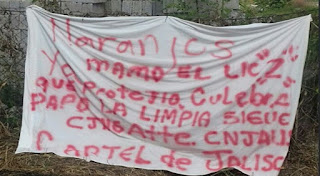 Naranjcs
ya mamo EL Lic "Z"
que protejia Culebra
PAPO LA LIMPIA SIGUE
Atte. CNJALIS
CARTEL de JALISC